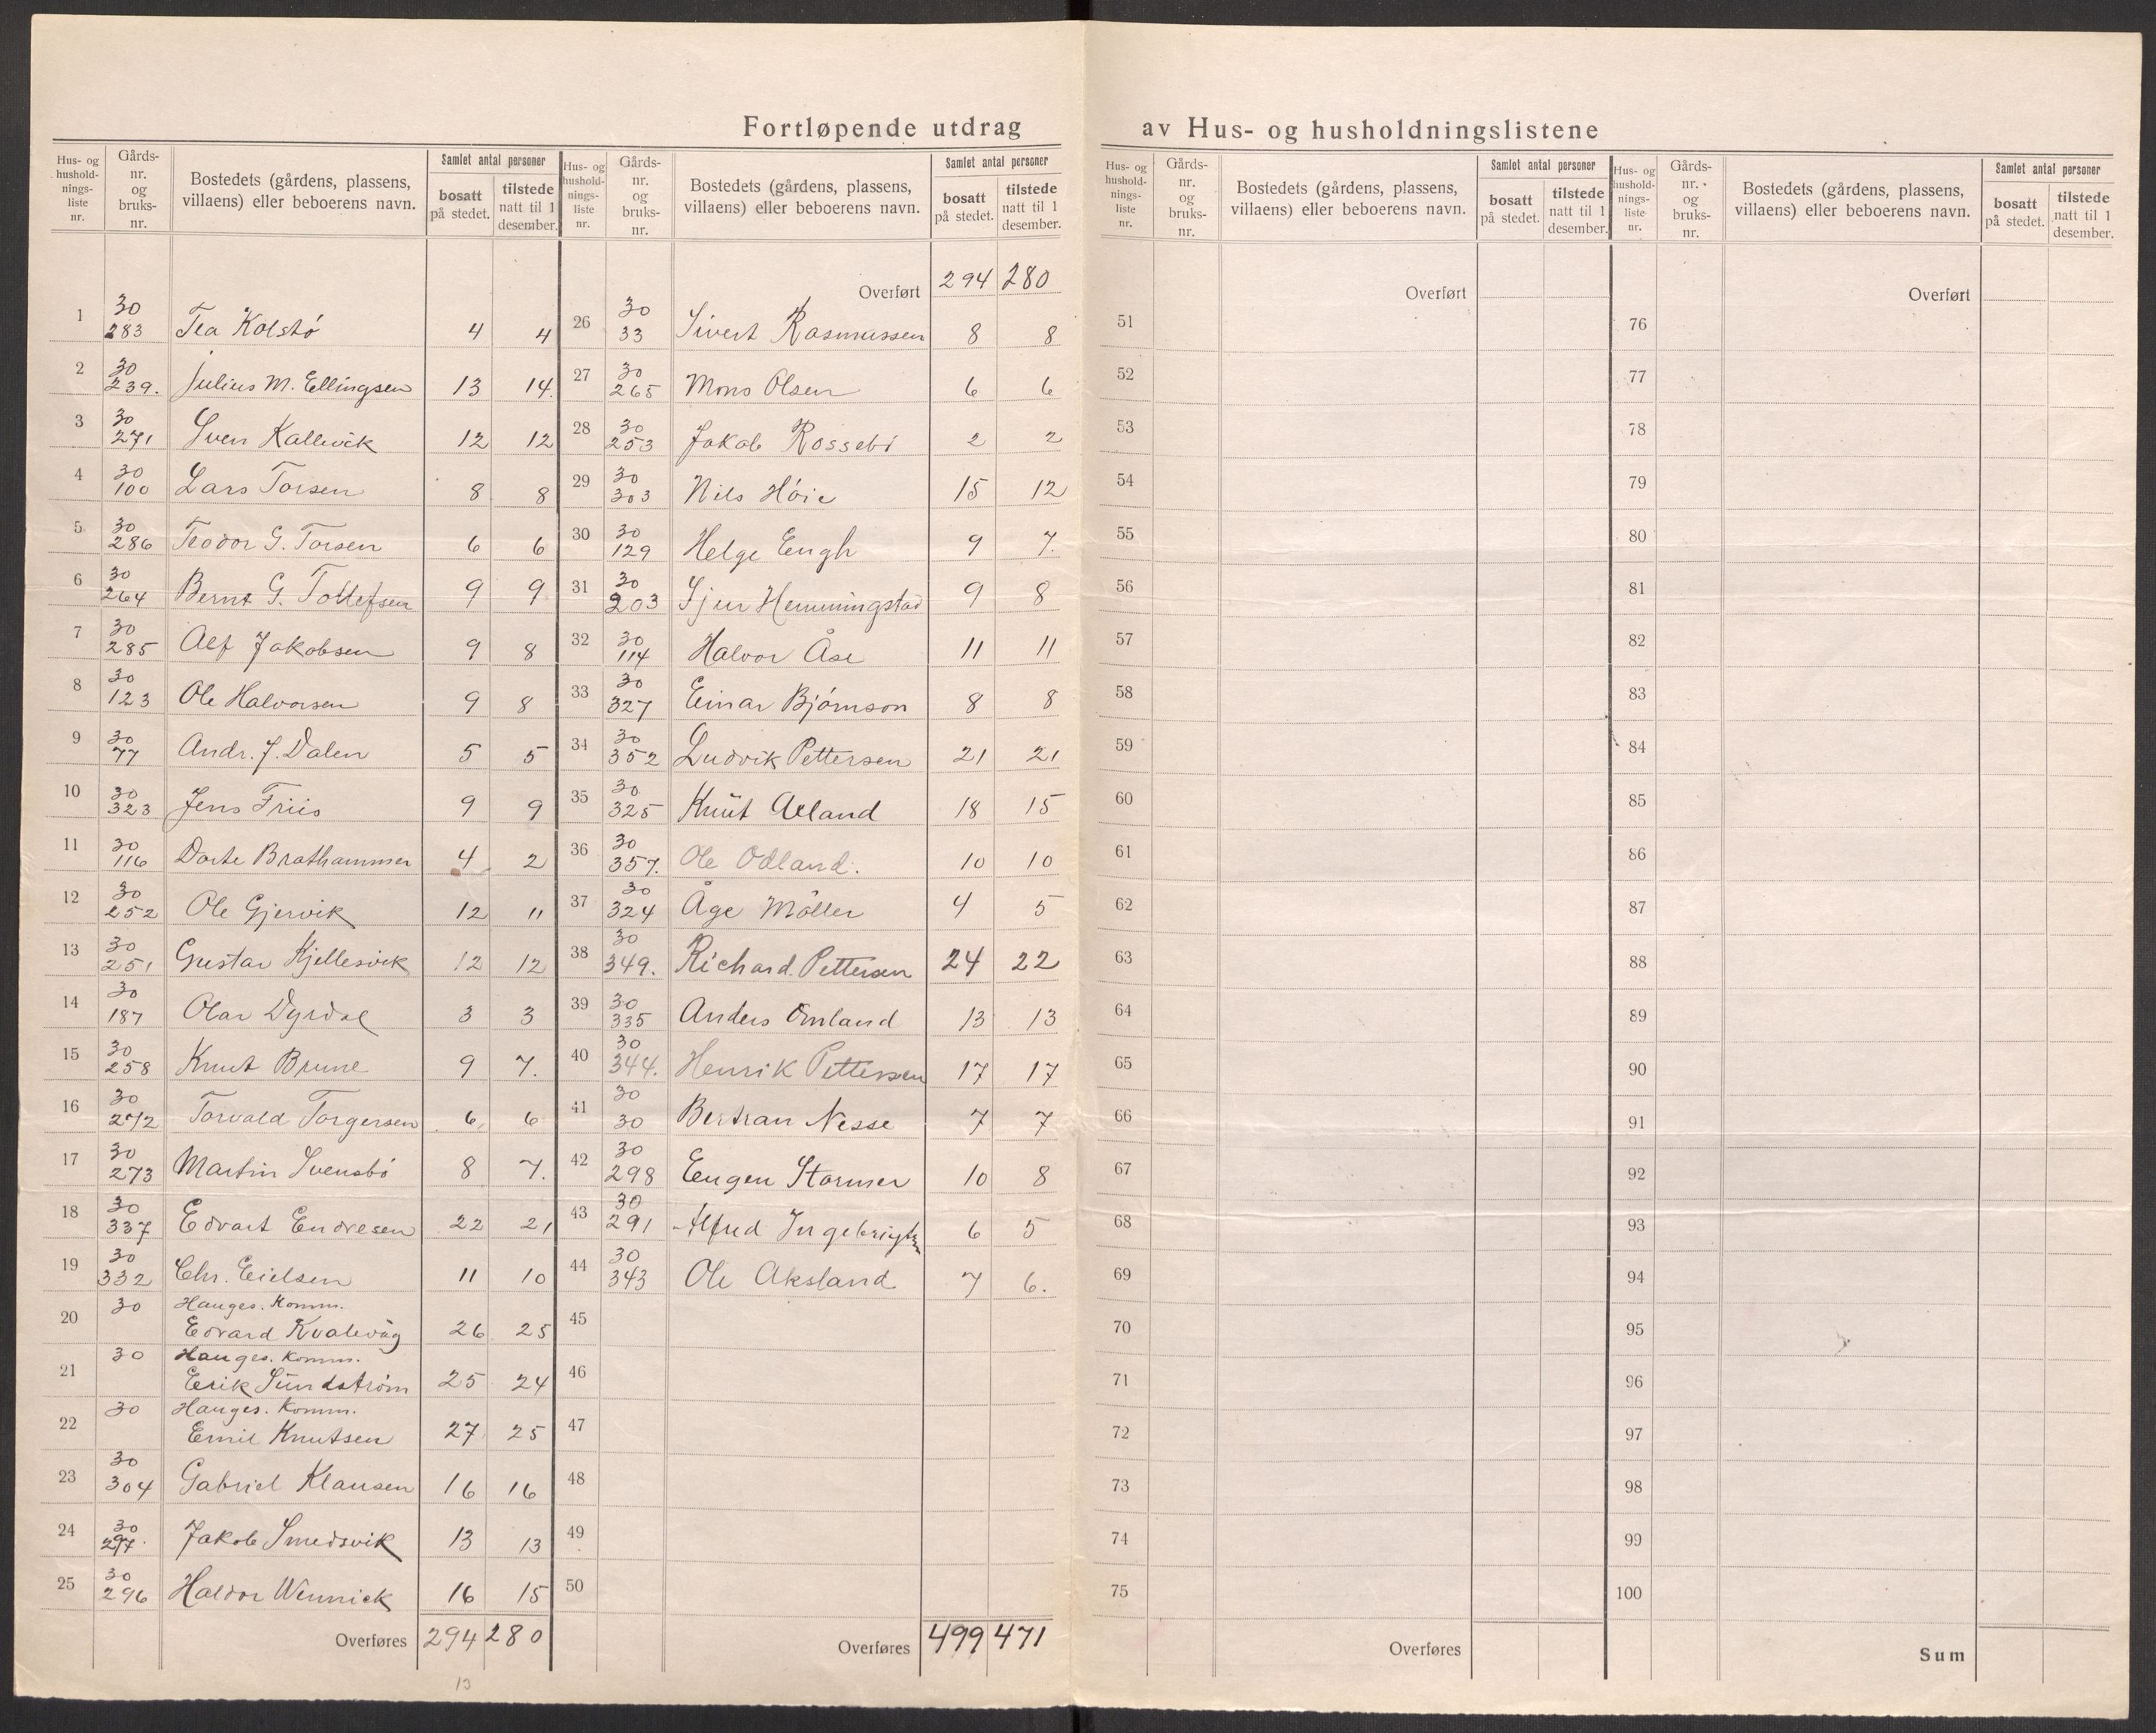 Fortløpende utdrag av Hus- og husholdningslistene
Hus- og husholdningsliste nr. | Gårdsnr. og bruksnr. | Bostedets (gårdens, plassens, villaens) eller beboerens navn. | Samlet antal personer bosatt på stedet. | tilstede natt til 1 desember.
1 30 283 Tea Kolstø 4 4
2 30 239. Julius M. Ellingsen 13 14.
3 30 271 Sven Kallevik 12 12
4 30 100 Lars Torsen 8 8
5 30 286 Teodor G. Torsen 6 6
6 30 264 Bernt G. Tollefsen 9 9
7 30 285 Alf Jakobsen 9 8
8 30 123 Ole Halvorsen 9 8
9 30 77 Andr. J. Dalen 5 5
10 30 323 Jens Friis 9 9
11 30 116 Dorte Brathammer 4 2
12 30 252 Ole Gjervik 12 11
13 30 251 Gustav Kjellesvik 12 12
14 30 187 Olav Dyrdal 3 3
15 30 258 Knut Brune 9 7.
16 30 272 Torvald Torgersen 6 6
17 30 273 Martin Svensbö 8 7.
18 30 337 Edvart Endresen 22 21
19 30 332 Chr. Eielsen 11 10
20 30 Hauges. Komm.
Edvard Kvalevåg 26 25
21 30 Hauges. Komm.
Erik Sundström 25 24
22 30 Hauges. Komm.
Emil Knutsen 27 25
23 30 304 Gabriel Klausen 16 16
24 30 297. Jakob Smedsvik 13 13
25 30 296 Haldor Winnick 16 15
Overføres 294 280
13
Hus- og husholdningsliste nr. | Gårdsnr. og bruksnr. | Bostedets (gårdens, plassens, villaens) eller beboerens navn. | Samlet antal personer bosatt på stedet. | tilstede natt til 1 desember.
Overført 294 280
26 30 33 Sivert Rasmussen 8 8
27 30 265 Mons Olsen 6 6
28 30 253 Jakob Rossebö 2 2
29 30 303 Nils Höie 15 12
30 30 129 Helge Eengh 9 7.
31 30 203 Sjur Hemmingstad 9 8
32 30 114 Halvor Åse 11 11
33 30 327 Einar Bjömson 8 8
34 30 352 Ludvik Pettersen 21 21
35 30 325 Knut Aeland 18 15
36 30 357. Ole Odland. 10 10
37 30 324 Åge Möller 4 5
38 30 349. Richard. Pettersen 24 22
39 30 335 Anders Omland 13 13
40 30 344. Henrik Pettersen 17 17
41 30 30 Bertran Nesse 7 7
42 30 298 Eugen Stormer 10 8
43 30 291 Alfred Ingebrigtsen 6 5
44 30 343 Ole Aksland 7 6.
45
46
47
48
49
50
Overføres 499 471
Hus- og husholdningsliste nr. | Gårdsnr. og bruksnr. | Bostedets (gårdens, plassens, villaens) eller beboerens navn. | Samlet antal personer bosatt på stedet. | tilstede natt til 1 desember.
Overført
51
52
53
54
55
56
57
58
59
60
61
62
63
64
65
66
67
68
69
70
71
72
73
74
75
Overføres
Hus- og husholdningsliste nr. | Gårdsnr. og bruksnr. | Bostedets (gårdens, plassens, villaens) eller beboerens navn. | Samlet antal personer bosatt på stedet. | tilstede natt til 1 desember.
Overført
76
77
78
79
80
81
82
83
84
85
86
87
88
89
90
91
92
93
94
95
96
97
98
99
100
Sum